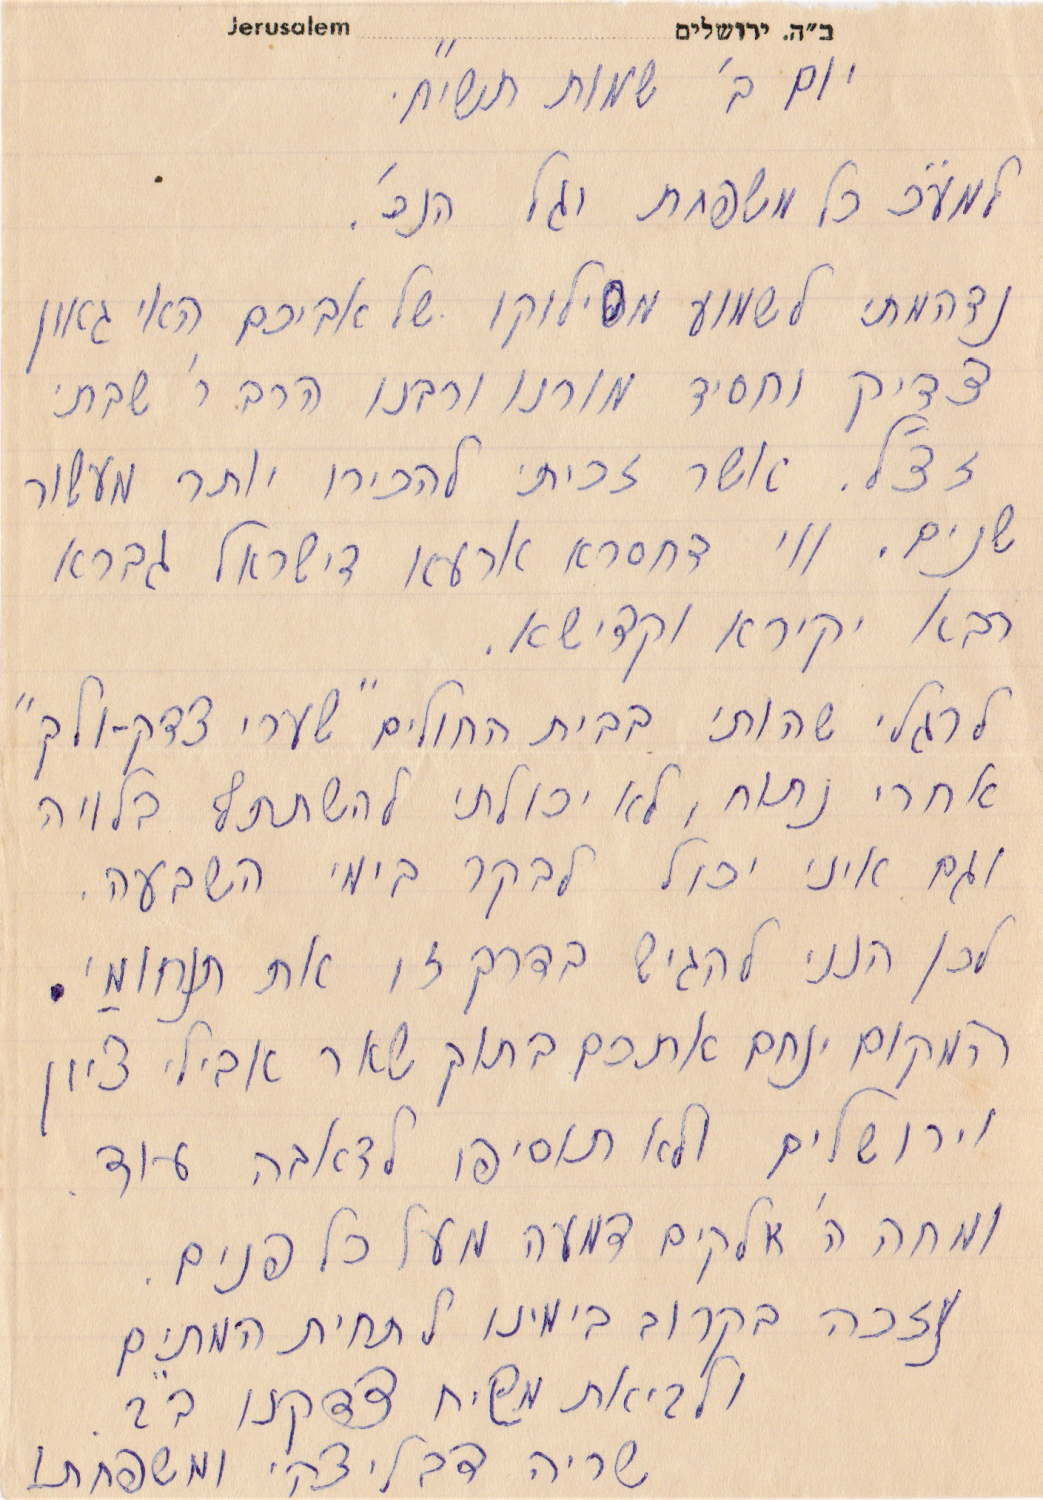 ב״ה. ירושלים Jerusalem
יום ב' שמות תשי״ח.
למע״כ כל משפחת יגל הנכ'.
נדהמתי לשמוע מסילוקו של אביכם האי גאון
צדיק וחסיד מורנו ורבנו הרב ר' שבתי
זצ״ל. אשר זכיתי להכירו יותר מעשור
שנים. ווי דחסרא ארעא דישראל גברא
רבא יקירא וקדישא.
לרגלי שהותי בבית החולים "שערי צדק-ולך"
אחרי נתוח, לא יכולתי להשתתף בלויה
וגם איני יכול לבקר בימי השבעה.
לכן הנני להגיש בדרך זו את תנחומי.
המקום ינחם אתכם בתוך שאר אבילי ציון
וירושלים ולא תוסיפו לדאבה עוד.
ומחה ה' אלקים דמעה מעל כל פנים.
ונזכה בקרוב בימינו לתחית המתים
ולביאת משיח צדקנו ב״ב.
שריה דבליצקי ומשפחתו